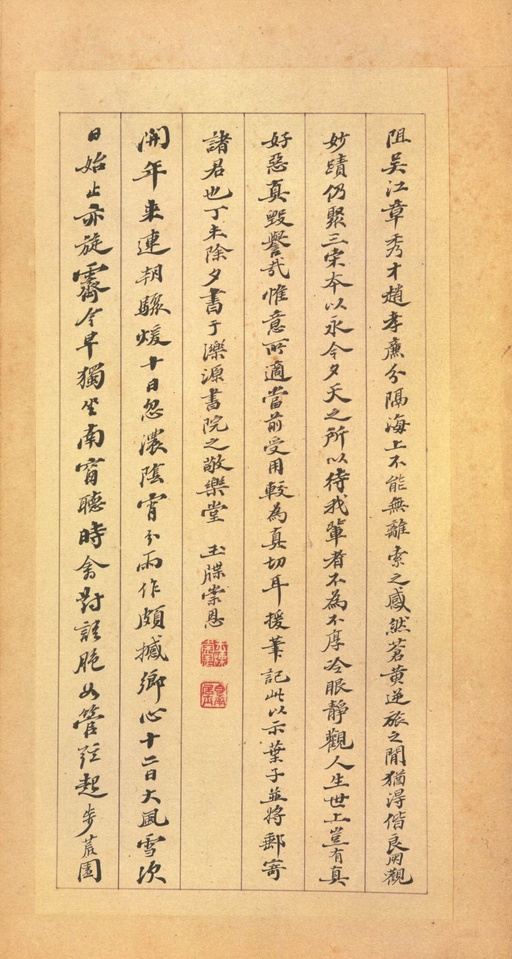 阻吴江章秀才趙孝廉分隔海上不能無離索之感然蒼黄逆旅之閒猶得偕良朋觀
妙蹟仍聚三宋本以永今夕天之所以待我輩者不為不厚冷眼靜觀人生世上豈有真
好惡真毀譽哉惟意所適當前受用較為真切耳援筆記此以示葉子並將郵寄
諸君也丁未除夕書于濼源書院之敬樂堂 玉牒崇恩
開年来連朝驟煖十日忽濃陰宵分雨作頗撼鄉心十二日大風雪次
日始止亦旋霽今早獨坐南窗聽時禽對語脆如管弦起步荒園